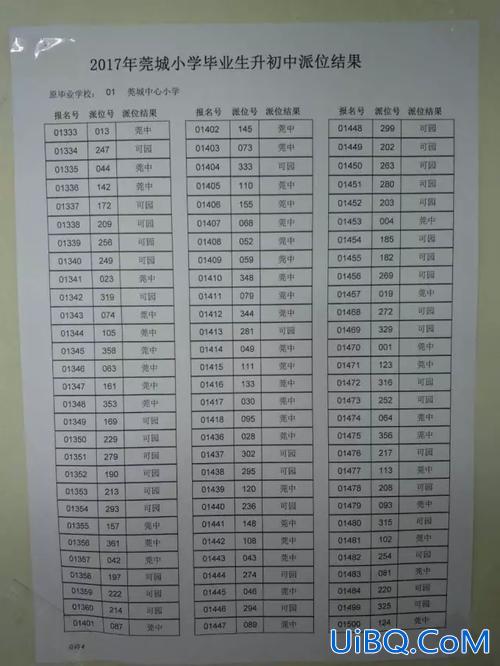 2017年莞城小学毕业生升初中派位结果
原毕业学校： 01 莞城中心小学
报名号 派位号 派位结果 报名号 派位号 派位结果 报名号 派位号 派位结果
01333 013 莞中 01402 145 莞中 01448 299 可园
01334 247 可园 01403 073 莞中 01449 202 可园
01335 044 莞中 01404 333 可园 01450 263 可园
01336 142 莞中 01405 110 莞中 01451 280 可园
01337 172 可园 01406 155 莞中 01452 203 可园
01338 209 可园 01407 068 莞中 01453 004 莞中
01339 256 可园 01408 052 莞中 01454 185 可园
01340 249 可园 01409 059 莞中 01455 182 可园
01341 023 莞中 01410 348 莞中 01456 269 可园
01342 319 可园 01411 079 莞中 01457 019 莞中
01343 074 莞中 01412 344 莞中 01468 272 可园
01344 105 莞中 01413 281 可园 01469 329 可园
01345 358 莞中 01414 049 莞中 01470 001 莞中
01346 063 莞中 01415 111 莞中 01471 123 莞中
01347 161 莞中 01416 133 莞中 01472 316 可园
01348 353 莞中 01417 030 莞中 01473 252 可园
01349 169 可园 01418 095 莞中 01474 064 莞中
01350 229 可园 01436 028 莞中 01475 356 莞中
01351 279 可园 01437 302 可园 01476 217 可园
01352 190 可园 01438 295 可园 01477 113 莞中
01353 213 可园 01439 120 莞中 01478 208 可园
01354 293 可园 01440 236 可园 01479 093 莞中
01355 157 莞中 01441 148 莞中 01480 315 可园
01356 361 莞中 01442 108 莞中 01481 102 莞中
01357 042 莞中 01443 043 莞中 01482 254 可园
01358 197 可园 01444 274 可园 01483 081 莞中
01359 222 可园 01445 046 莞中 01484 220 可园
01360 214 可园 01446 294 可园 01499 325 可园
01401 087 莞中 01447 089 莞中 01500 124 莞中
UiBQ.CoM